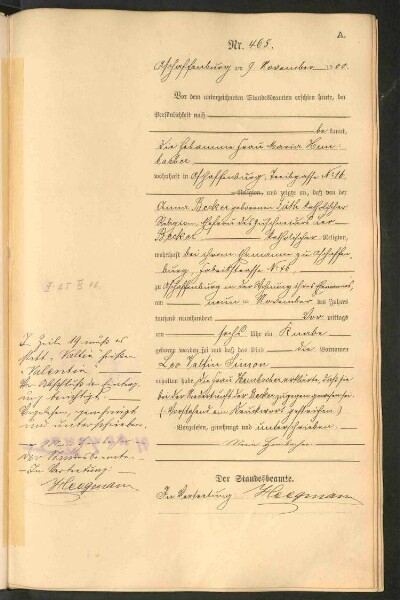 A.
Nr. 465.
Aschaffenburg am 9. November 1900.
Vor dem unterzeichneten Standesbeamten erschien heute, der
Persönlichkeit nach
be kannt,
die Hebamme Frau Maria Hem-
wohnhaft in Aschaffenburg, Treibgasse № 16.
Religion, und zeigte an, daß von der
Anna Becker geborenen katholischer
Religion, Ehefrau des Zuschneiders
Becker katholischer Religion,
wohnhaft bei ihrem Ehemanne zu Aschaffen-
burg, № 46,
zu Aschaffenburg in der Wohnung ihres Ehemannes,
am neun- November des Jahres
tausend neunhundert Vor mittags
um sechs Uhr ein Knabe
geboren worden sei und daß das Kind die Vornamen
Leo Veltin Simon
erhalten habe. Die Frau erklärte, daß sie
bei der Niederkunft der Becker zugegen gewesen sei.
(Vorstehend ein Druckwort gestrichen.)
Vorgelesen, genehmigt und unterschrieben.
Der Standesbeamte.
In Vertretung Heegmann
In Zeile 19 muß es
statt "Veltin" heißen
"Valentin".
Vor Abschluß der Eintra-
gung berichtigt.
Vorgelesen, genehmigt
und unterschrieben.
Der Standesbeamte
In Vertretung:
Heegmann